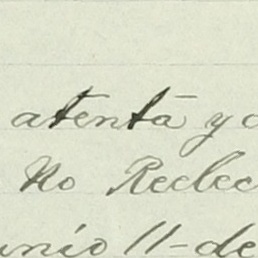 atentā y c
No Reelec
unio 11-de